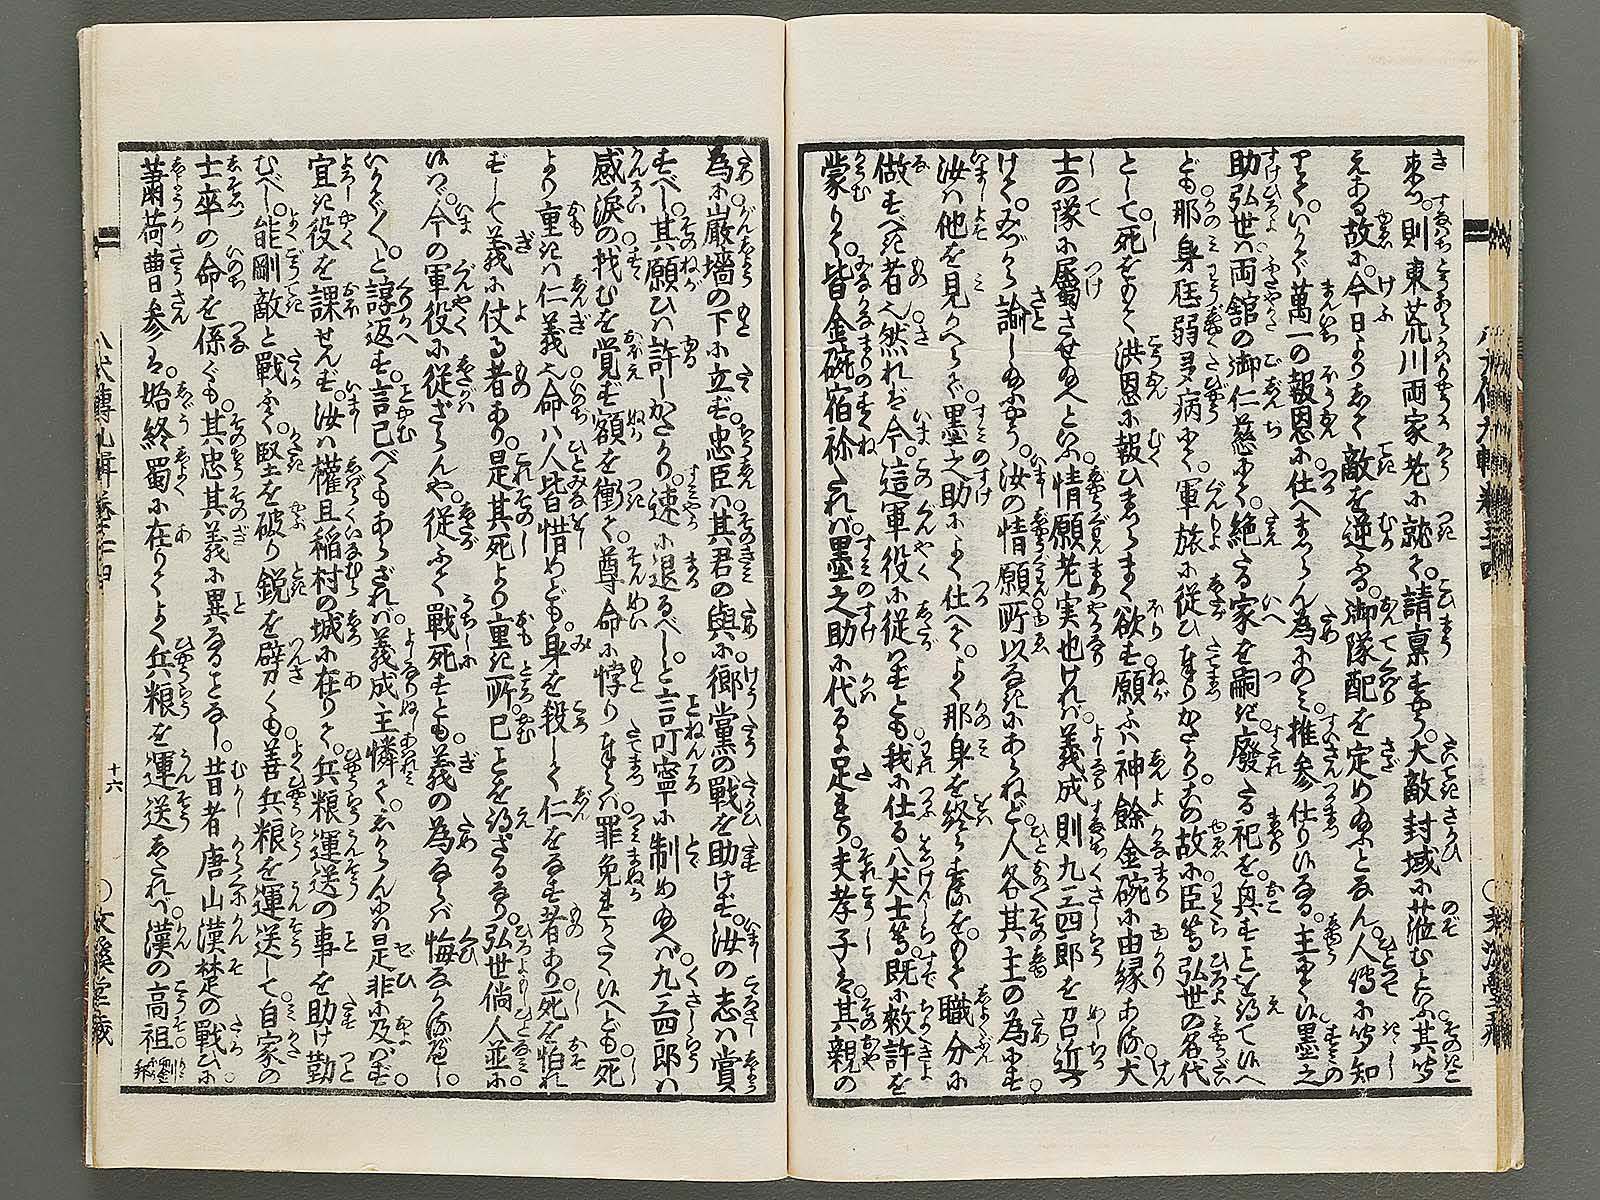 来つ。則東荒川両家老に就て。請稟すやう。大敵封域に莅むといふ其聞
えある故に。今日よりして敵を逆ふる。御隊配を定め給ふとなん。人傳に聞知
りて。いかで萬一の報恩に仕へまつらん為にのみ。推参仕り候なる。主に候墨之
助弘世は両舘の御仁慈にて。絶たる家を嗣ぎ。廃たる祀を。興すことを得て候へ
ども。那身尫弱多病にて。軍旅に従ひまつりがたかり。この故に臣等弘世の名代
として。死をもて洪恩に報ひまつらまく欲す。願ふは神餘金碗に由縁ある。犬
士の隊に属させ給へといふ。情願老実也ければ。義成則九三四郎を召近づ
けて。ねぎらひ諭し給ふやう。汝の情願所以なきにあらねど。人各其主の為にす。
汝は他を見かへらで。墨之助によく仕へて。よく那身を終らするをもて職分に
做すべき者也。然れば今。這軍役に従はずとも。我に仕る八犬士等。既に敕許を
蒙りて。皆金碗宿祢たれば。墨之助に代るに足れり。夫孝子は。其親の
為に巌墻の下に立ず。忠臣は其君の與に。郷黨の戦を助けず。汝の志は賞
すべし。其願ひは許しがたかり。速に退るべし。と言叮寧に制め給へば。九三四郎は
感涙の找むを覚ず。額を衝て。尊命に悖りまつらば。罪免れがたく候へども。死
より重きは仁義也。命は人皆惜めども。身を殺して仁をなす者あり。死を怕れ
ずして義に仗る者あり。是其死より重き所。已ことを得ざるなり。弘世倘人並に
候はゞ。今の軍役に従ざらんや。従ふて戦死すとも。義の為ならば悔なかるべし。
いかでいかで。と諄返す。言已べくもあらざれば。義成主憐て。しからんには是非に及ばず。
宜き役を課せんず。汝は權且稲村の城に在りて。兵粮運送の事を助け勤
むべし。能剛敵と戦ふて。堅を破り鋭を劈くも。善兵粮を運送して。自家の
士卒の命を係ぐも。其忠其義に異なることなし。昔者唐山漢楚の戦ひに
蕭何曹参は。始終蜀に在りてよく兵粮を運送したれば。漢の高祖劉邦
八犬傳九輯巻三十四
十六
○文溪堂藏